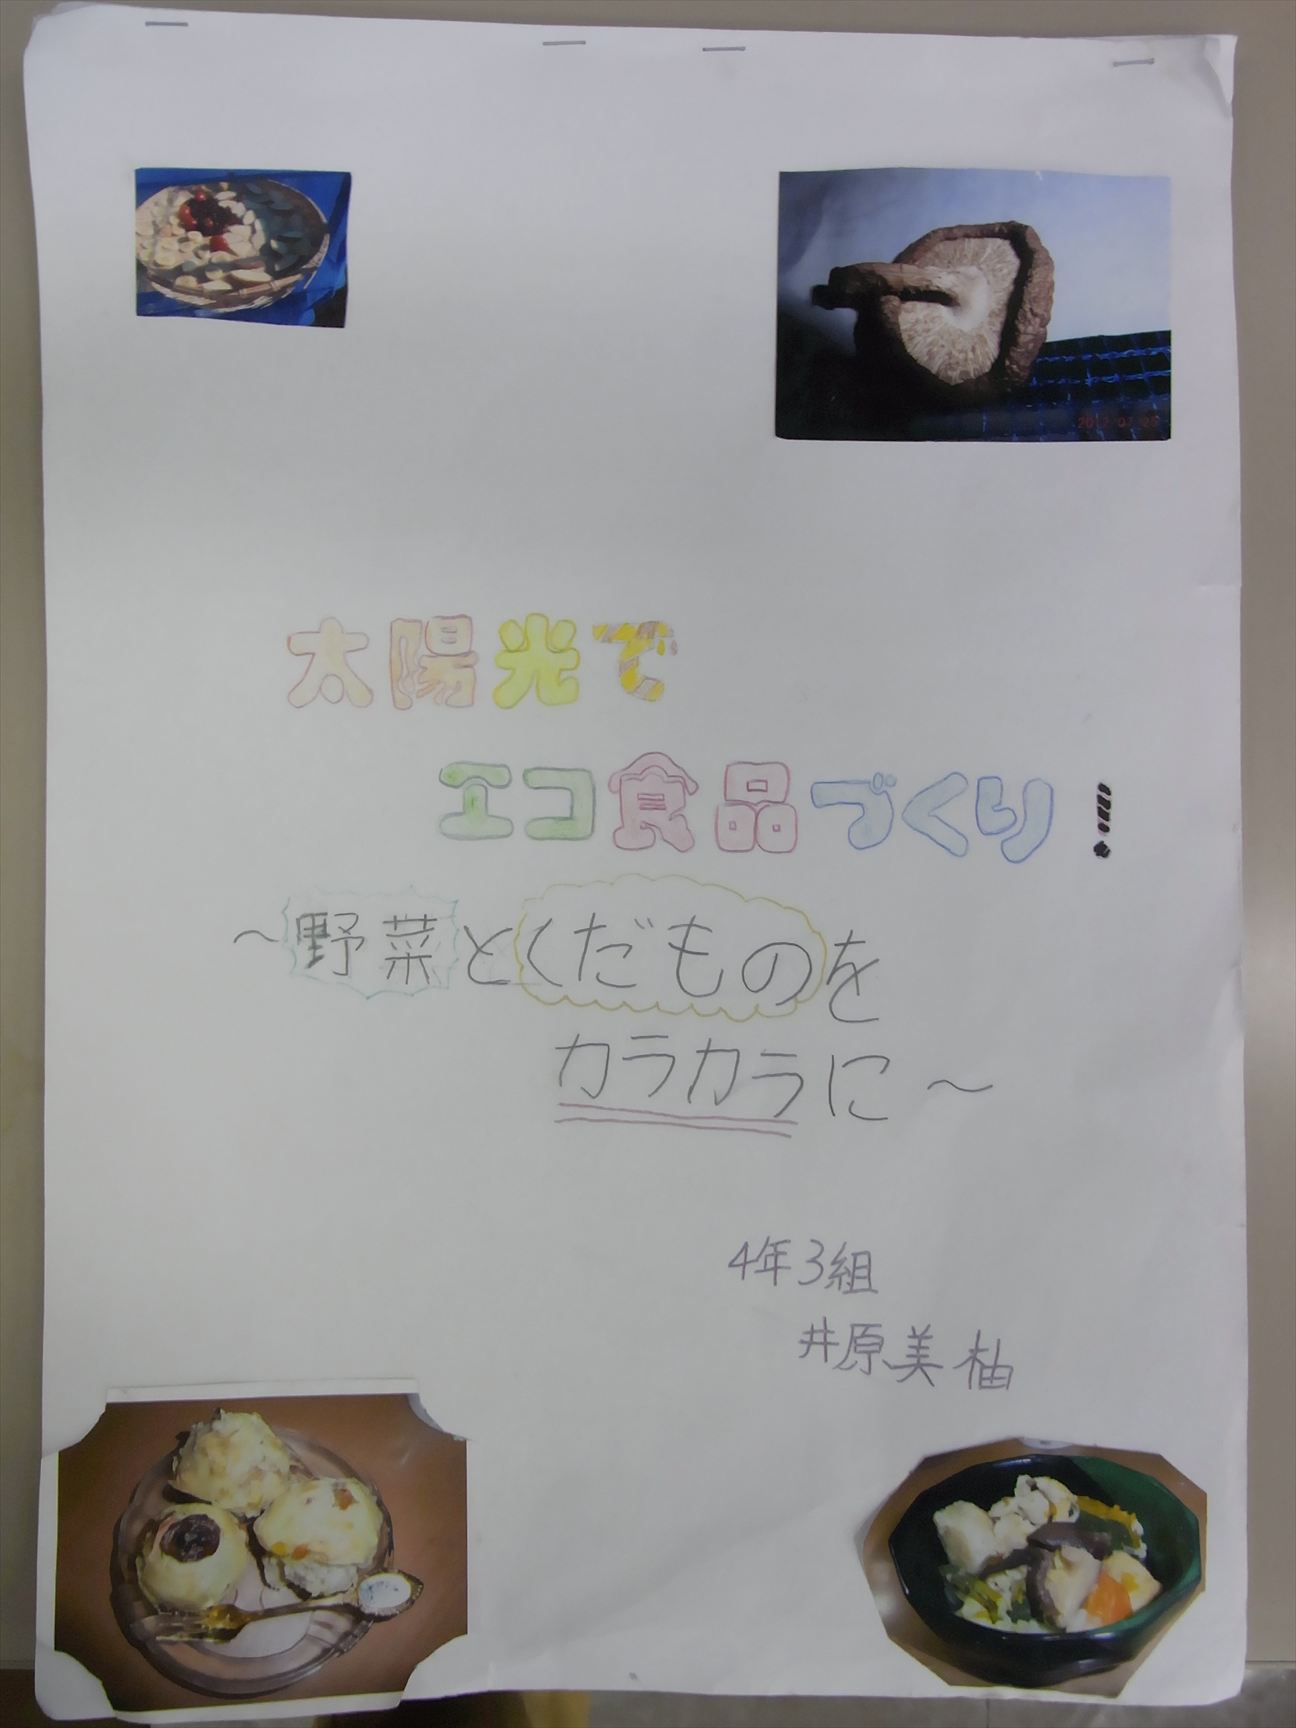 太陽光で
エコ食品づくり!
～野菜とくだものを
カラカラに～
4年3組
井原美柚
2012/07/25